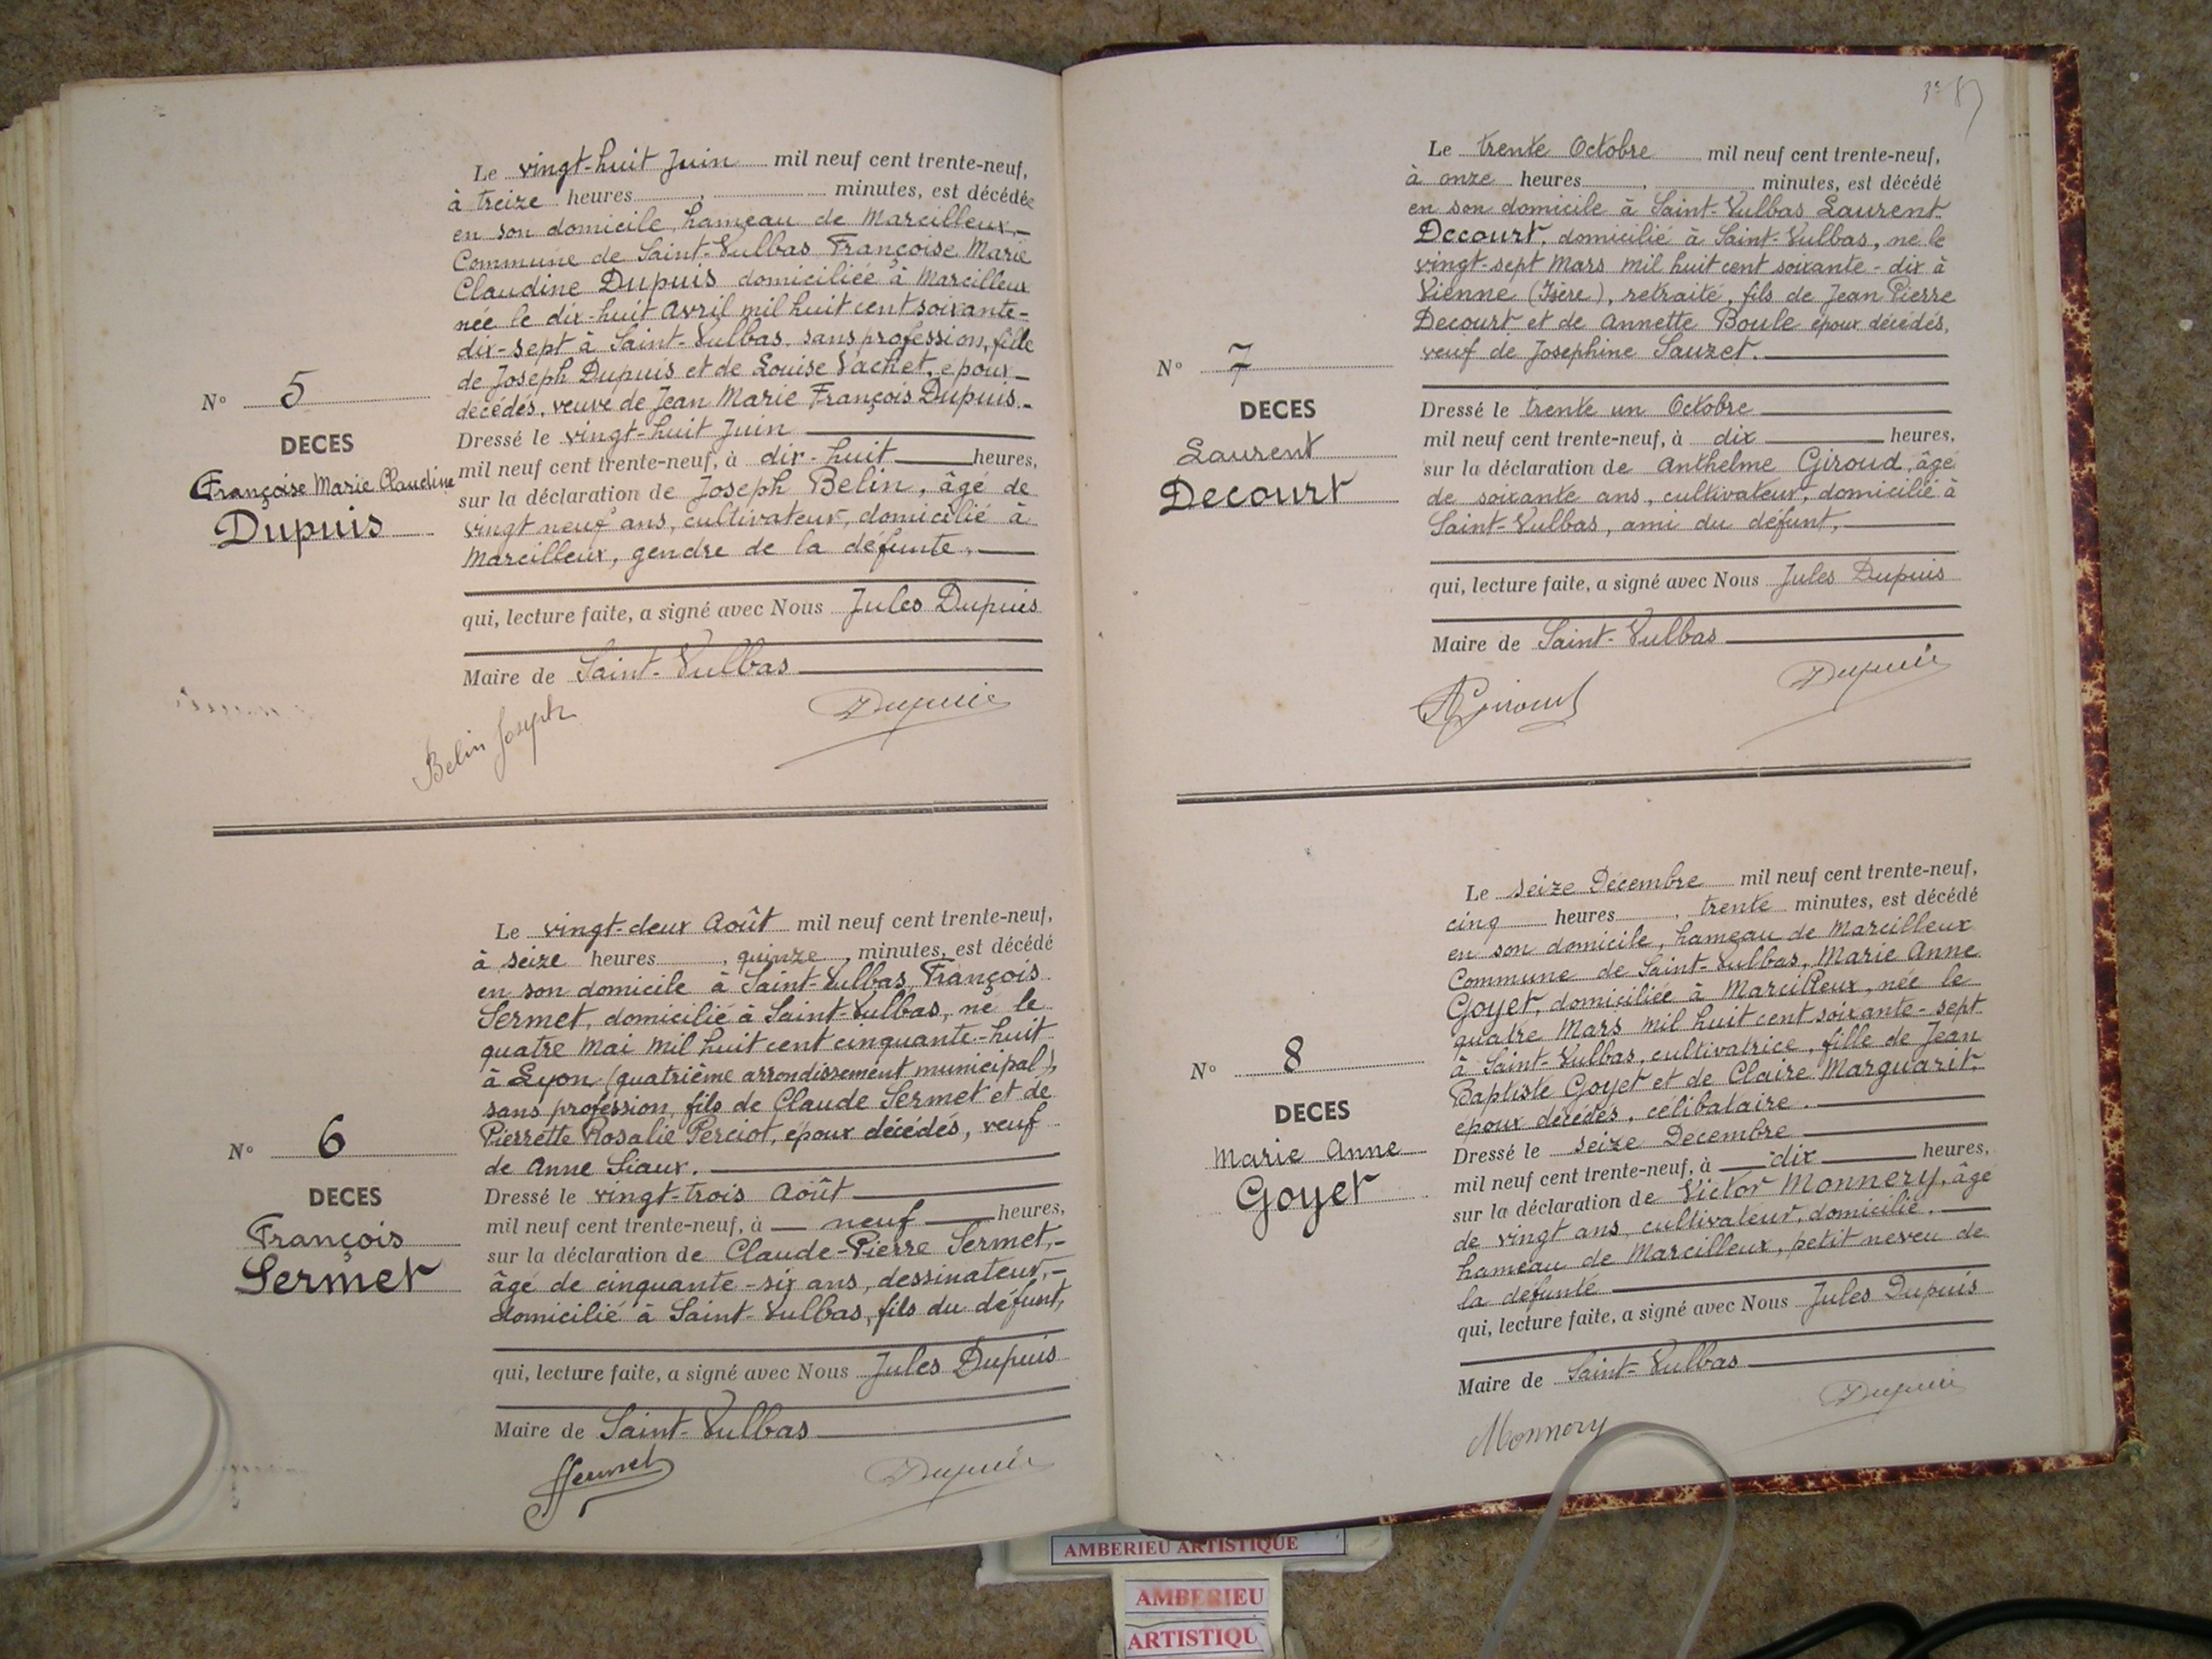 Le vingt-huit Juin mil neuf cent trente-neuf,
à treize heures , minutes, est décédée
en son domicile, hameau de Marcilleux,
Commune de Saint-Vulbas Françoise Marie
Claudine Dupuis domiciliée à Marcilleux
née le dix-huit Avril mil huit cent soixante-
dix-sept à Saint-Vulbas, sans profession, fille
de Joseph Dupuis et de Louise Vachet, époux
décédés, veuve de Jean Marie François Dupuis.
N° 5
DECES
Françoise Marie Claudine
Dupuis
Dressé le vingt-huit Juin
mil neuf cent trente-neuf, à dix-huit heures,
sur la déclaration de Joseph Belin, âgé de
vingt neuf ans, cultivateur, domicilié à
Marcilleux, gendre de la défunte,
qui, lecture faite, a signé avec Nous Jules Dupuis
Maire de Saint-Vulbas
Belin Joseph
Dupuis
Le vingt-deux Août mil neuf cent trente-neuf,
à seize heures , quinze , minutes, est décédé
en son domicile à Saint-Vulbas, François
Sermet, domicilié à Saint-Vulbas, né le
quatre Mai mil huit cent cinquante-huit
à Lyon (quatrième arrondissement municipal),
sans profession, fils de Claude Sermet et de
Pierrette Rosalie Perciot, époux décédés, veuf
de Anne Siaux.
N° 6
DECES
François
Sermet
Dressé le vingt-trois Août
mil neuf cent trente-neuf, à neuf heures,
sur la déclaration de Claude-Pierre Sermet,
âgé de cinquante-six ans, dessinateur,
domicilié à Saint-Vulbas, fils du défunt,
qui, lecture faite, a signé avec Nous Jules Dupuis
Maire de Saint-Vulbas
Sermet
Dupuis
Le trente Octobre mil neuf cent trente-neuf,
à onze heures , minutes, est décédé
en son domicile à Saint-Vulbas Laurent
Decourt, domicilié à Saint-Vulbas, né le
vingt-sept Mars mil huit cent soixante-dix à
Vienne (Isère), retraité, fils de Jean Pierre
Decourt et de Annette Boule époux décédés,
veuf de Josephine Sauzet.
N° 7
DECES
Laurent
Decourt
Dressé le trente un Octobre
mil neuf cent trente-neuf, à dix heures,
sur la déclaration de Anthelme Giroud, âgé
de soixante ans, cultivateur, domicilié à
Saint-Vulbas, ami du défunt,
qui, lecture faite, a signé avec Nous Jules Dupuis
Maire de Saint-Vulbas
AGiroud
Dupuis
Le seize Décembre mil neuf cent trente-neuf,
cinq heures , trente minutes, est décédé
en son domicile, hameau de Marcilleux
Commune de Saint-Vulbas, Marie Anne
Goyet, domiciliée à Marcilleux, née le
quatre Mars mil huit cent soixante-sept
à Saint-Vulbas, cultivatrice, fille de Jean
Baptiste Goyet et de Claire Marguarit,
époux décédés, célibataire.
N° 8
DECES
Marie Anne
Goyet
Dressé le seize Décembre
mil neuf cent trente-neuf, à dix heures,
sur la déclaration de Victor Monnery, âgé
de vingt ans, cultivateur, domicilié,
hameau de Marcilleux, petit neveu de
la défunte
qui, lecture faite, a signé avec Nous Jules Dupuis
Maire de Saint-Vulbas
Monnery
Dupuis
AMBERIEU ARTISTIQUE
AMBERIEU
ARTISTIQU